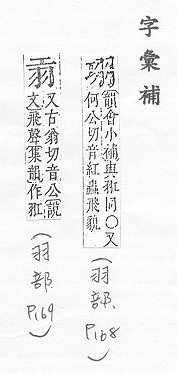 字彙補
韻會小補與羾同〇又
何公切音紅蟲飛貌
(羽部、P168)
又古翁切音公說
文飛聲集韻作羾
(羽部 P169)